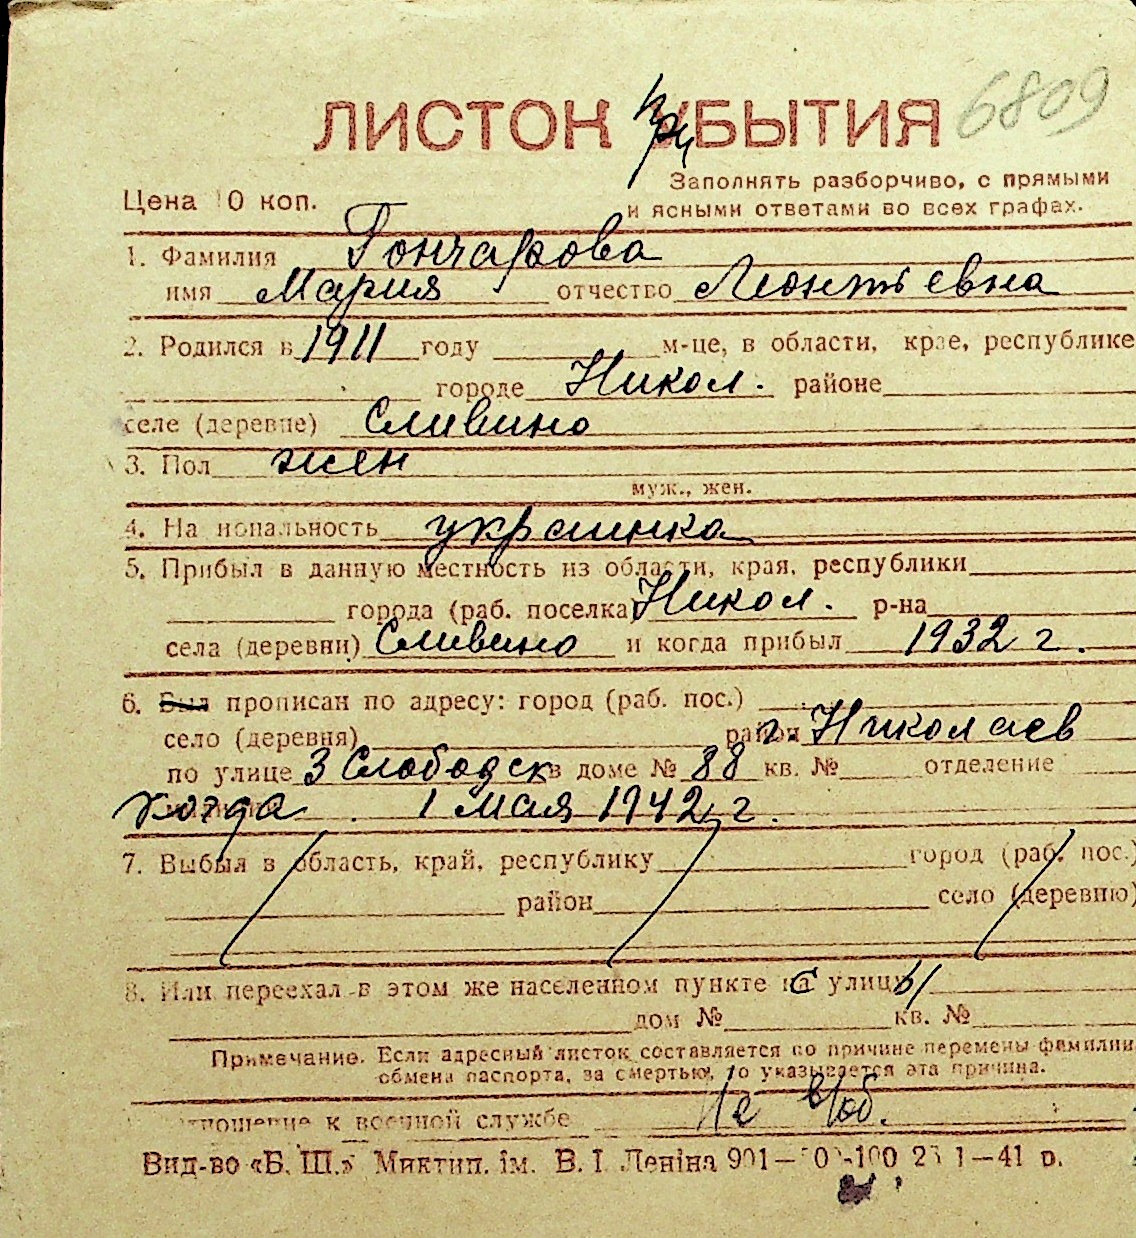 6809
ЛИСТОК ПРИБЫТИЯ
Цена 10 коп.
Заполнять разборчиво, с прямыми
и ясными ответами во всех графах.
1. Фамилия Гончарова
имя Мария отчество Леонтьевна
2. Родился в 1911 году м-це, в области, крае, республике
городе Никол. районе
селе (деревне) Сливино
3. Пол жен
муж., жен.
4. Национальность украинка
5. Прибыл в данную местность из области, края, республики
города (раб. поселка) Никол. р-на
села (деревни) Сливино и когда прибыл 1932 г.
6. Был прописан по адресу: город (раб. пос.)
село (деревня) район г. Николаев
по улице 3 Слободск в доме № 88 кв. № отделение
когда 1 мая 1942 г.
7. Выбыл в область, край, республику город (раб. пос.)
район село (деревню)
8. Или переехал в этом же населенном пункте с улицы
дом № кв. №
Примечание. Если адресный листок составляется по причине перемены фамилии
обмена паспорта, за смертью, то указывается эта причина.
Отношение к военной службе Не в/об.
Вид-во «Б. Ш.» Миктип. ім. В. І. Леніна 901— 1—41 р.